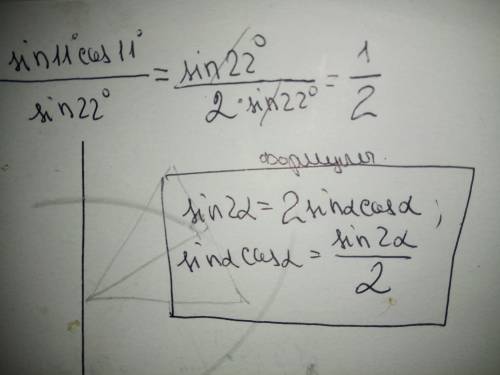 sin11° cos11° / sin22° = sin22° / 2·sin22° = 1/2
формулы.
sin2α = 2sinαcosα;
sinαcosα = sin2α / 2